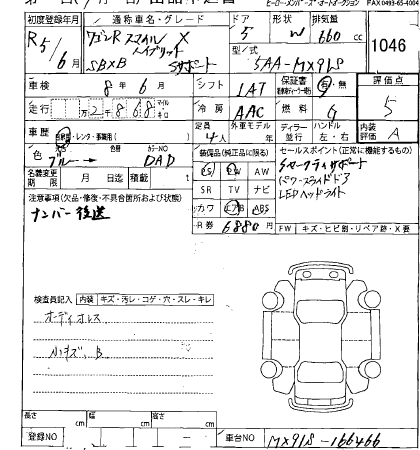 ヒーロー・メンバーズ・オートオークション FAX 0493-65-4004
初度登録年月 通称車名・グレード ドア 形状 排気量
R5/6月 ワゴンR スマイル X 5 W 660cc 1046
ハイブリッド
SBXB Sサポート 型式 5AA-MX91S
車検 8年6月 シフト IAT 保証書 有・無 評価点
走行 2 868 マイル キロ 冷房 AAC 燃料 G 5
車歴 自家用・レンタ・事業用( ) 定員 4人 外車モデル ディーラー 並行 ハンドル 左・右 内装評価 A
色 色替 カラーNO 装備品(純正品に限る) セールスポイント(正常に機能するもの)
ブルー DAD PS PW AW
名義変更期限 月 日迄 積載 t SR TV ナビ
LEDヘッドライト
注意事項(欠品・修復・不具合箇所および状態) カワ エアB ABS
ナンバー後送 R券 6880円 FW キズ・ヒビ割・リペア跡・X要
検査員記入 内装 キズ・汚レ・コゲ・穴・スレ・キレ
オーディオレス
小キズ、B
長さ cm 幅 cm 高さ cm
登録NO 車台NO MX91S-166466